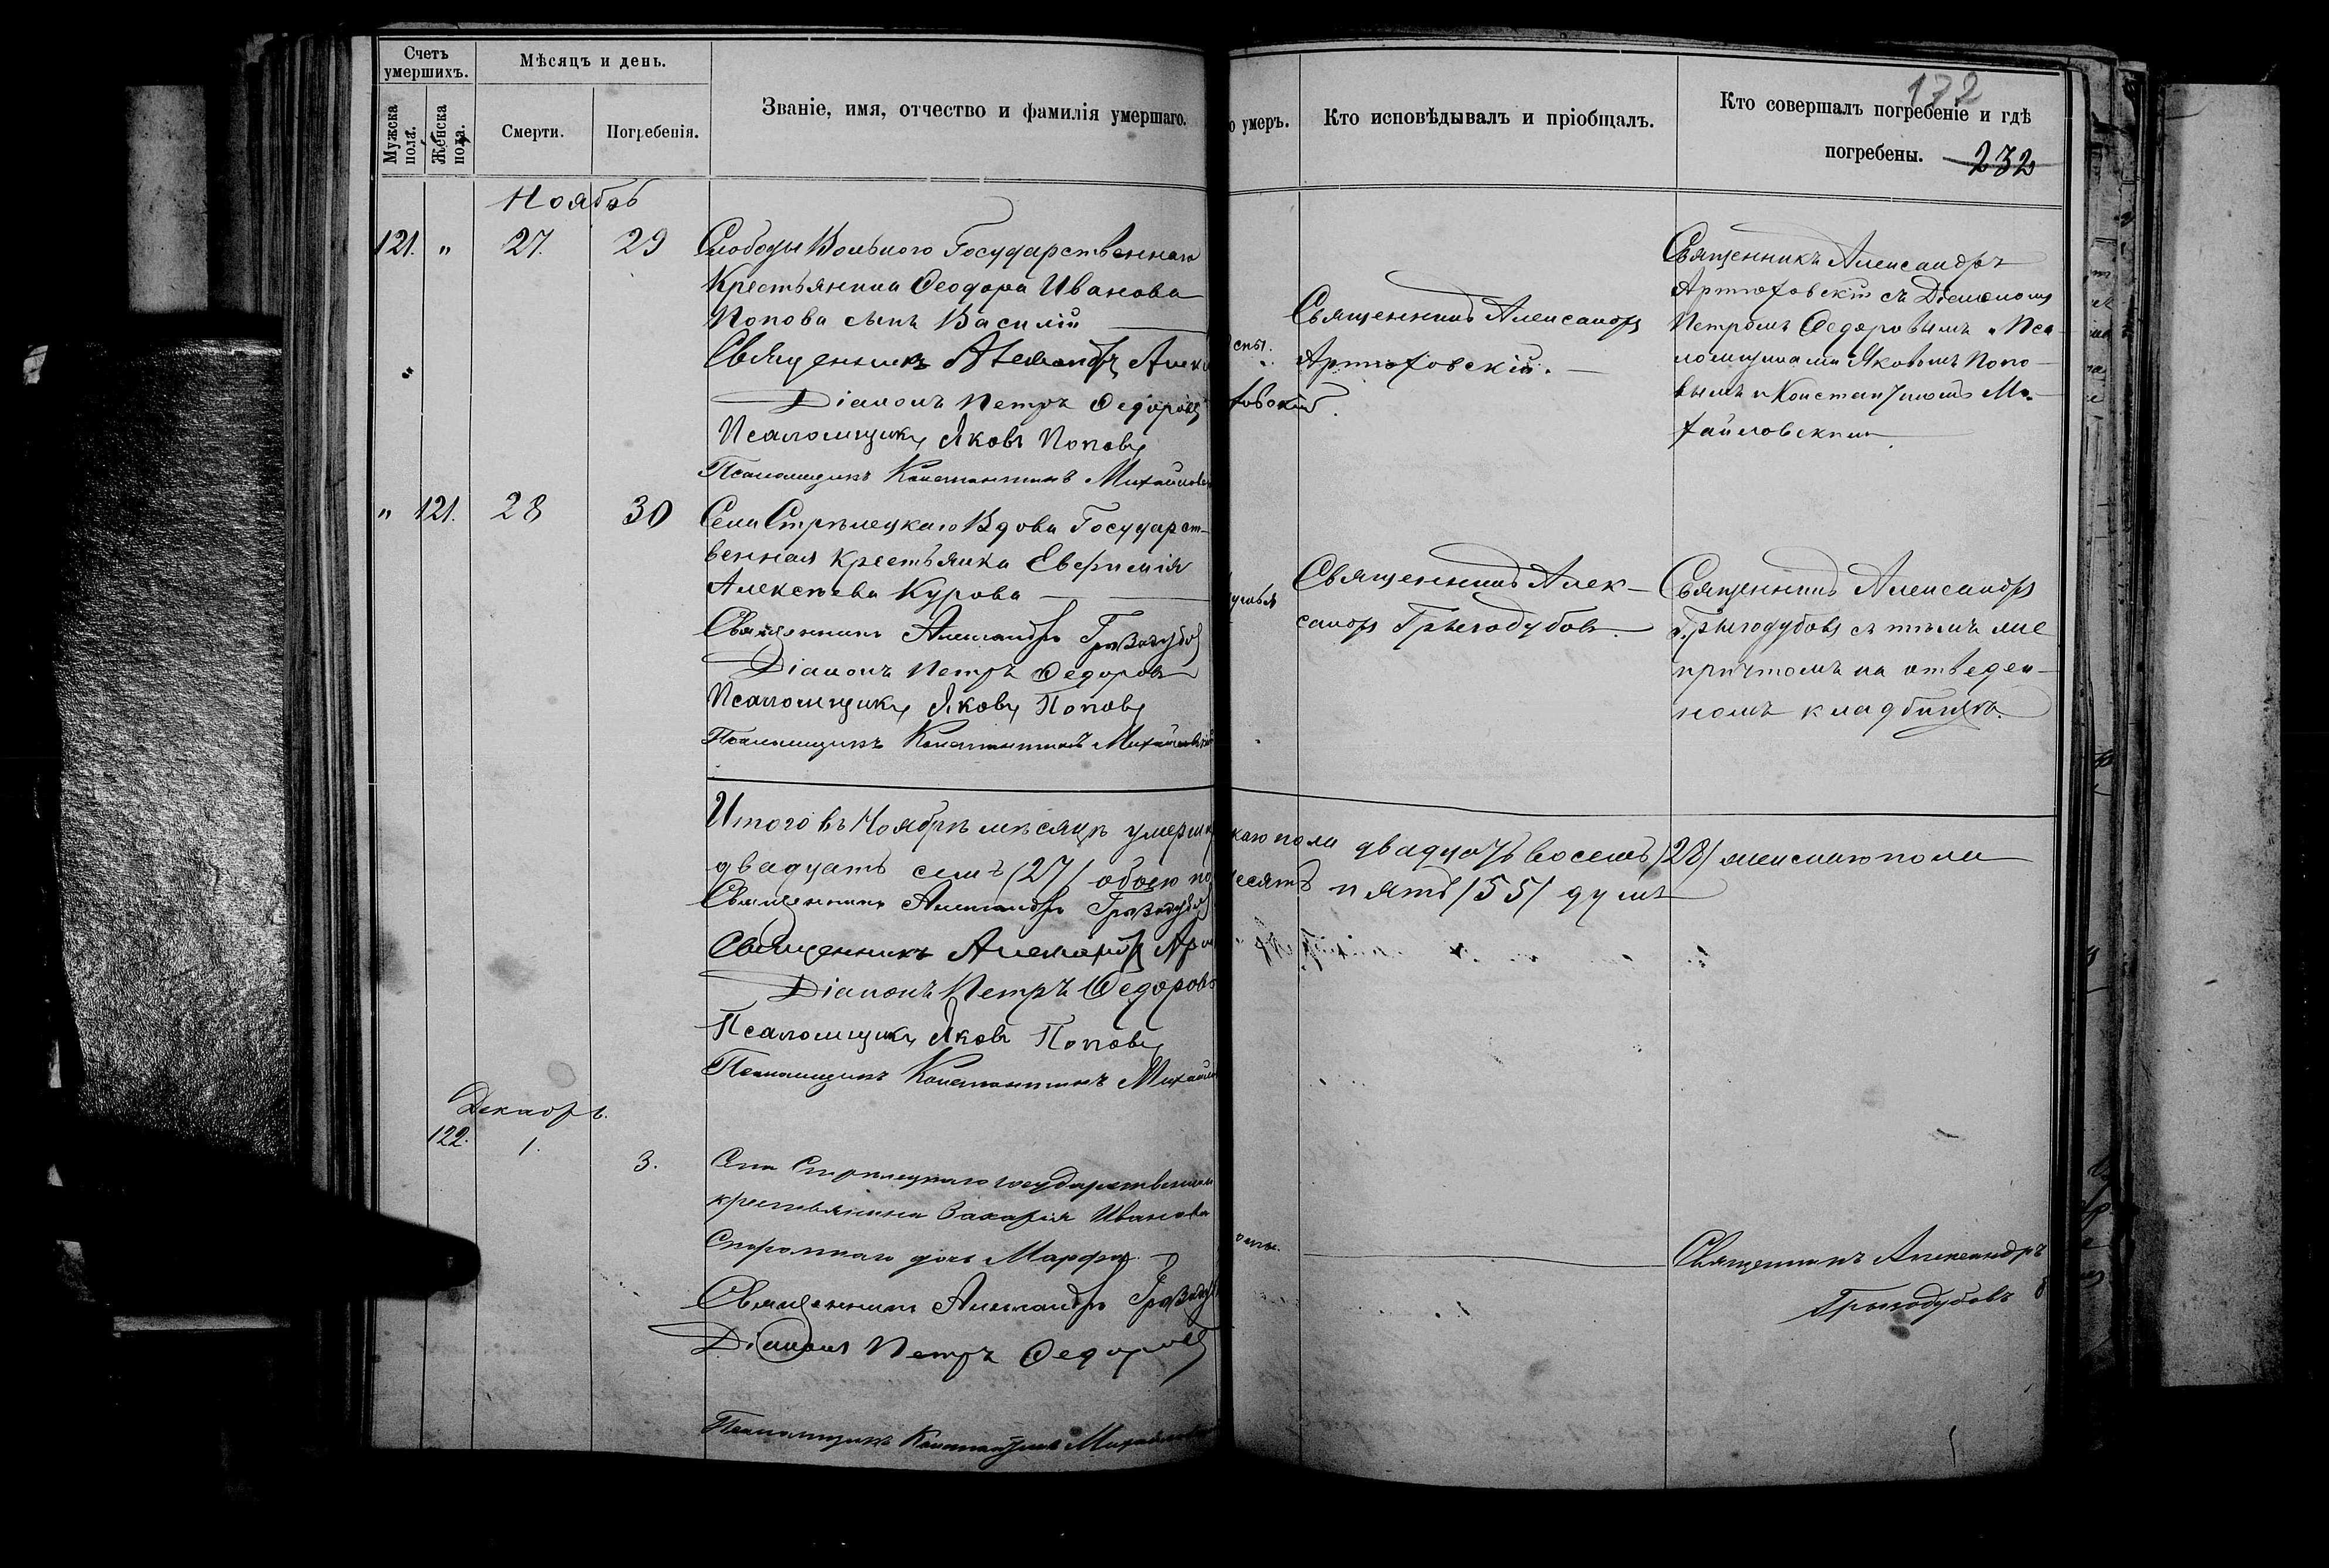 Счетъ умершихъ.
Мужска пола.
Женска пола.
Мѣсяцъ и день.
Смерти.
Погребенія.
Званіе, имя, отчество и фамилія умершаго.
о умеръ.
Кто исповѣдывалъ и пріобщалъ.
Кто совершалъ погребеніе и гдѣ
погребены.
172
232
Ноябрь
121. " 27. 29
Слободы Вольного Государственнаго
Крестьянина Ѳеодора Иванова
Попова сынъ Василій
Священникъ Александръ
Діаконъ Петръ Ѳедоровъ
Псаломщикъ Яковъ Поповъ
Псаломщикъ Константинъ Михайловск
спы.
Священникъ Александръ
Артюховскій.
ховскій.
Священникъ Александръ
Артюховскій съ Діакономъ
Петромъ Ѳедоровымъ и Пса-
ломщиками Яковомъ Попо-
вымъ и Константиномъ Ми-
хайловскимъ
" 121. 28 30
Села Стрѣлецкаго Вдова Государст-
венная крестьянка Евфимія
Алексѣева Курова
Священникъ Александръ Грѣзодубов
Діаконъ Петръ Ѳедоровъ
Псаломщикъ Яковъ Поповъ
Псаломщикъ Константинъ Михайловскій
Священникъ Алек-
сандръ Грѣзодубовъ.
Священникъ Александръ
Грѣзодубовъ съ тѣмъ же
причтомъ на отведен-
номъ кладбищѣ.
Итого въ Ноябрѣ мѣсяцѣ умерш
каго пола двадцать восемь /28/ женскаго пола
двадцать семь /27/ обоего по
десятъ пять /55/ душъ
Священникъ Александръ Грѣзодубов
Священникъ Александръ Арт
Діаконъ Петръ Ѳедоровъ
Псаломщикъ Яковъ Поповъ
Псаломщикъ Константинъ Михайл
Декабрь.
122. 1. 3.
Села Стрѣлецкаго государственнаго
крестьянина Захарія Иванова
дочь Марфа.
Священникъ Александръ Грѣзодуб
Діаконъ Петръ Ѳедоровъ
Псаломщикъ Константинъ Михайловск
оспы.
Священникъ Александръ
Грѣзодубовъ